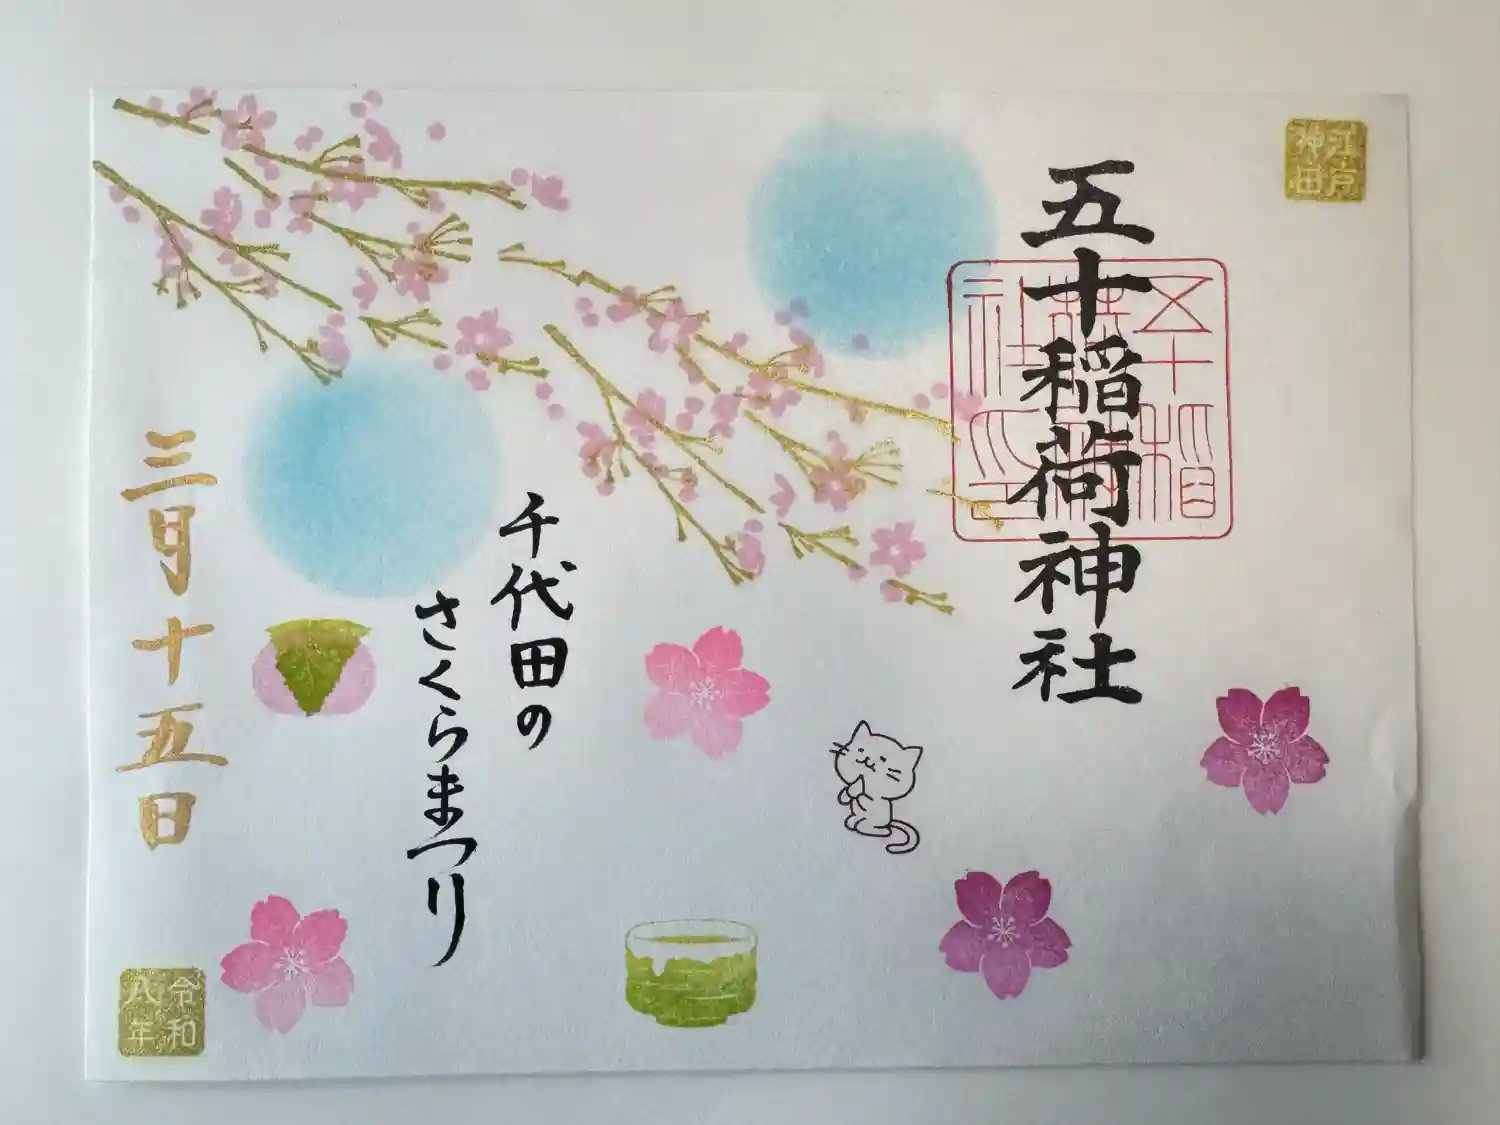 江戸
神田
五十稲荷神社
五十稲
荷神
社之印
千代田の
さくらまつり
三月十五日
令和
八年